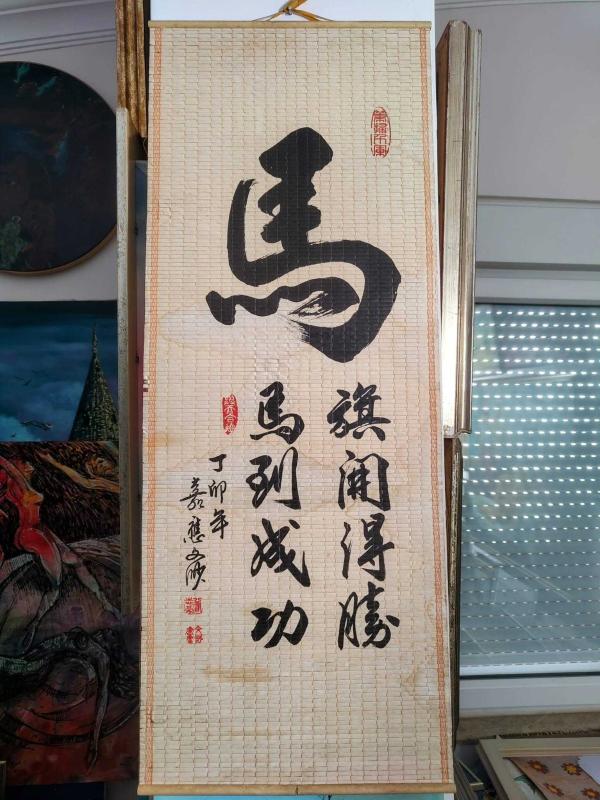 馬
旗開得勝
馬到成功
丁卯年
嘉應